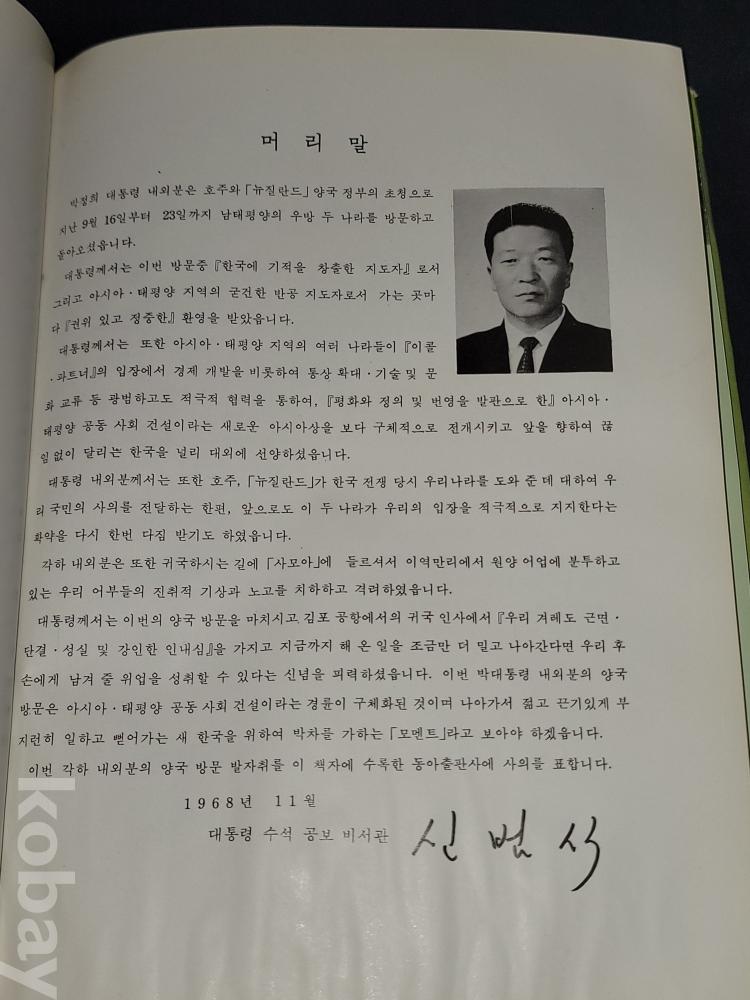 머리말
박정희 대통령 내외분은 호주와 「뉴질란드」 양국 정부의 초청으로
지난 9월 16일부터 23일까지 남태평양의 우방 두 나라를 방문하고
돌아오셨읍니다.
대통령께서는 이번 방문중 『한국에 기적을 창출한 지도자』로서
그리고 아시아·태평양 지역의 굳건한 반공 지도자로서 가는 곳마
다 『권위 있고 정중한』 환영을 받았읍니다.
대통령께서는 또한 아시아·태평양 지역의 여러 나라들이 『이콜
·파트너』의 입장에서 경제 개발을 비롯하여 통상 확대·기술 및 문
화 교류 등 광범하고도 적극적 협력을 통하여, 『평화와 정의 및 번영을 발판으로 한』 아시아·
태평양 공동 사회 건설이라는 새로운 아시아상을 보다 구체적으로 전개시키고 앞을 향하여 끊
임없이 달리는 한국을 널리 대외에 선양하셨읍니다.
대통령 내외분께서는 또한 호주, 「뉴질란드」가 한국 전쟁 당시 우리나라를 도와 준 데 대하여 우
리 국민의 사의를 전달하는 한편, 앞으로도 이 두 나라가 우리의 입장을 적극적으로 지지한다는
확약을 다시 한번 다짐 받기도 하였읍니다.
각하 내외분은 또한 귀국하시는 길에 「사모아」에 들르셔서 이역만리에서 원양 어업에 분투하고
있는 우리 어부들의 진취적 기상과 노고를 치하하고 격려하였읍니다.
대통령께서는 이번의 양국 방문을 마치시고 김포 공항에서의 귀국 인사에서 『우리 겨레도 근면·
단결·성실 및 강인한 인내심』을 가지고 지금까지 해 온 일을 조금만 더 밀고 나아간다면 우리 후
손에게 남겨 줄 위업을 성취할 수 있다는 신념을 피력하셨읍니다. 이번 박대통령 내외분의 양국
방문은 아시아·태평양 공동 사회 건설이라는 경륜이 구체화된 것이며 나아가서 젊고 끈기있게 부
지런히 일하고 뻗어가는 새 한국을 위하여 박차를 가하는 「모멘트」라고 보아야 하겠읍니다.
이번 각하 내외분의 양국 방문 발자취를 이 책자에 수록한 동아출판사에 사의를 표합니다.
1968년 11월
대통령 수석 공보 비서관 신범식
kobay